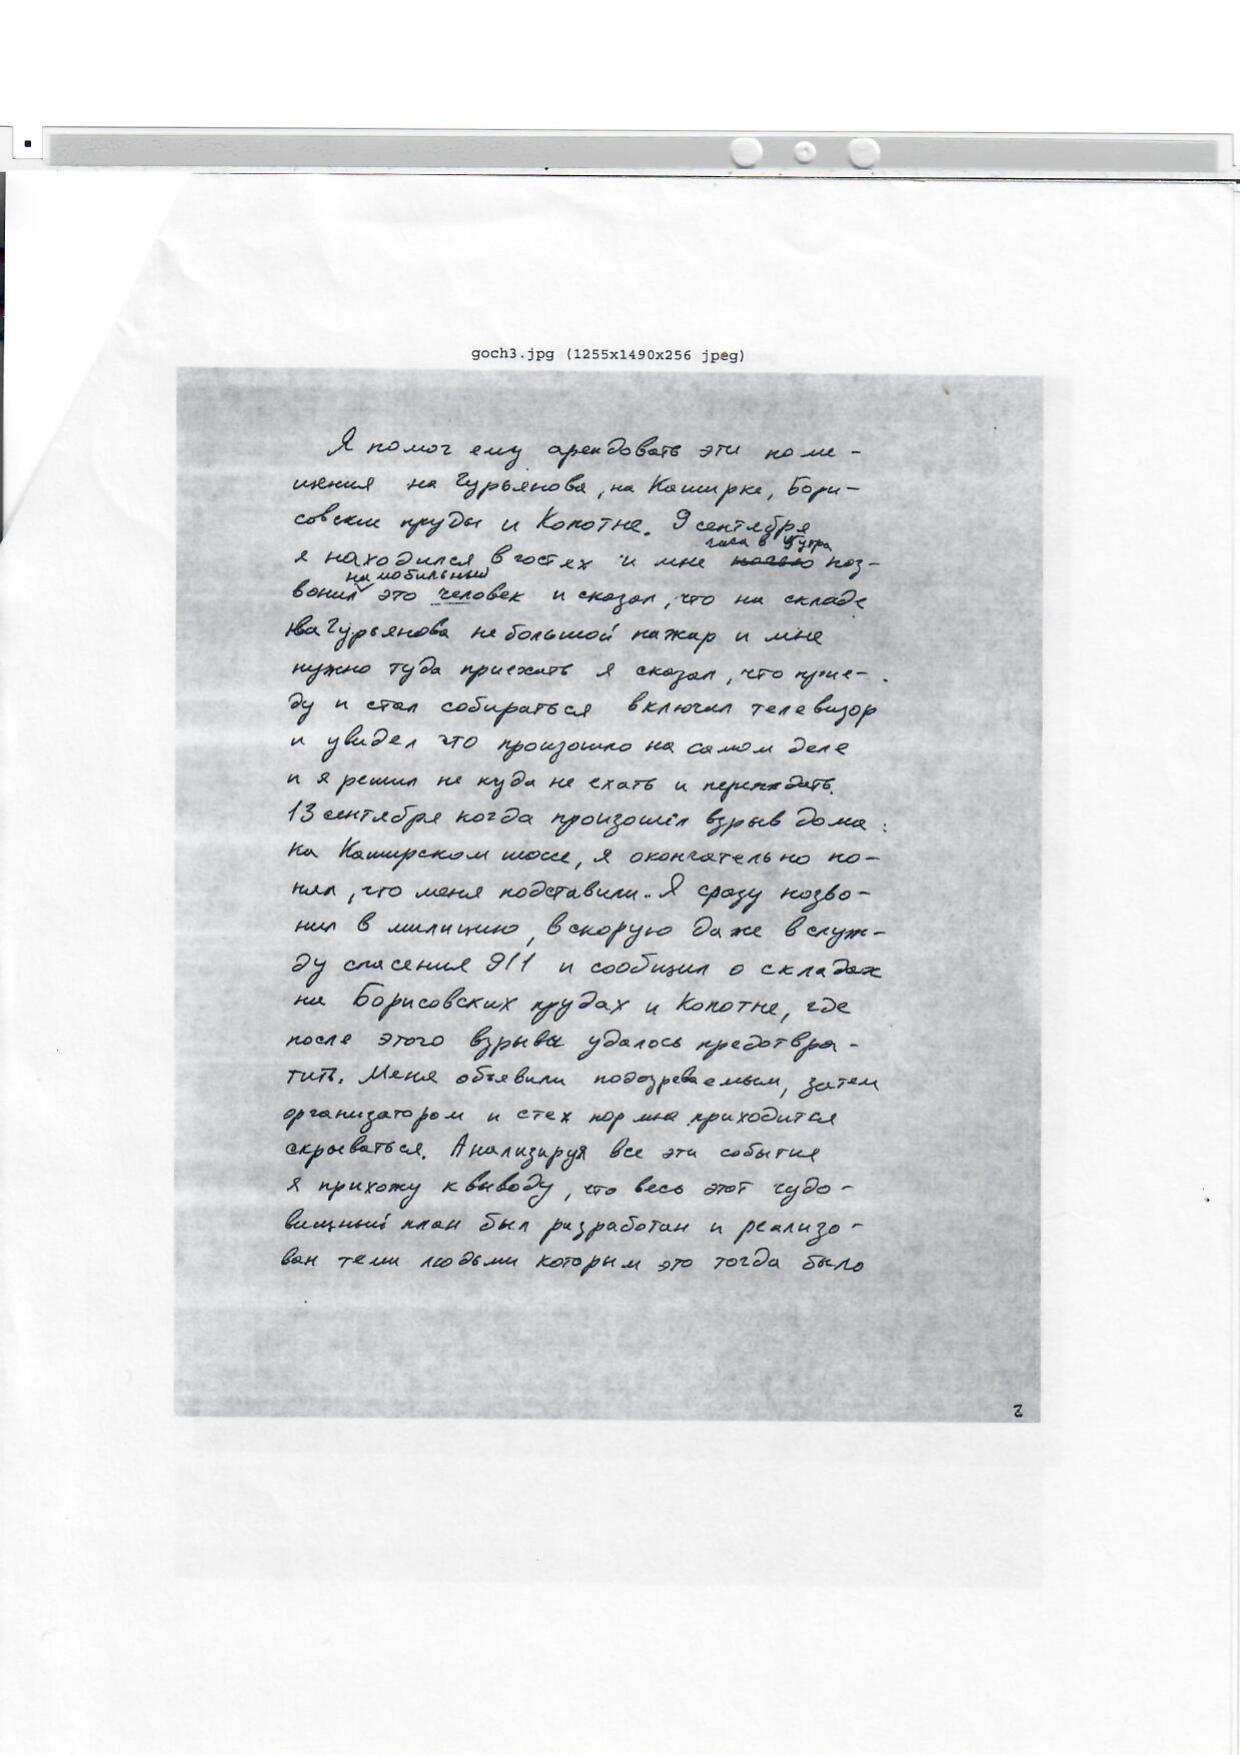 goch3.jpg (1255x1490x256 jpeg)
Я помог ему арендовать эти поме-
щения на Гурьянова, на Каширке, Бори-
совские пруды и Копотне. 9 сентября
часа в 5 утра
я находился в гостях и мне ночью поз-
на мобильный
вонил это человек и сказал, что на складе
на Гурьянова небольшой пажар и мне
нужно туда приехать я сказал, что прие-
ду и стал собираться включил телевизор
и увидел что произошло на самом деле
и я решил не куда не ехать и переждать.
13 сентября когда произошёл взрыв дома
на Каширском шоссе, я окончательно по-
нял, что меня подставили. Я сразу позво-
нил в милицию, в скорую даже в служ-
бу спасения 911 и сообщил о складах
на Борисовских прудах и Копотне, где
после этого взрывы удалось предотвра-
тить. Меня объявили подозреваемым, затем
организатором и стех пор мне приходится
скрываться. Анализируя все эти события
я прихожу к выводу, что весь этот чудо-
вищный план был разработан и реализо-
ван теми людьми которым это тогда было
2